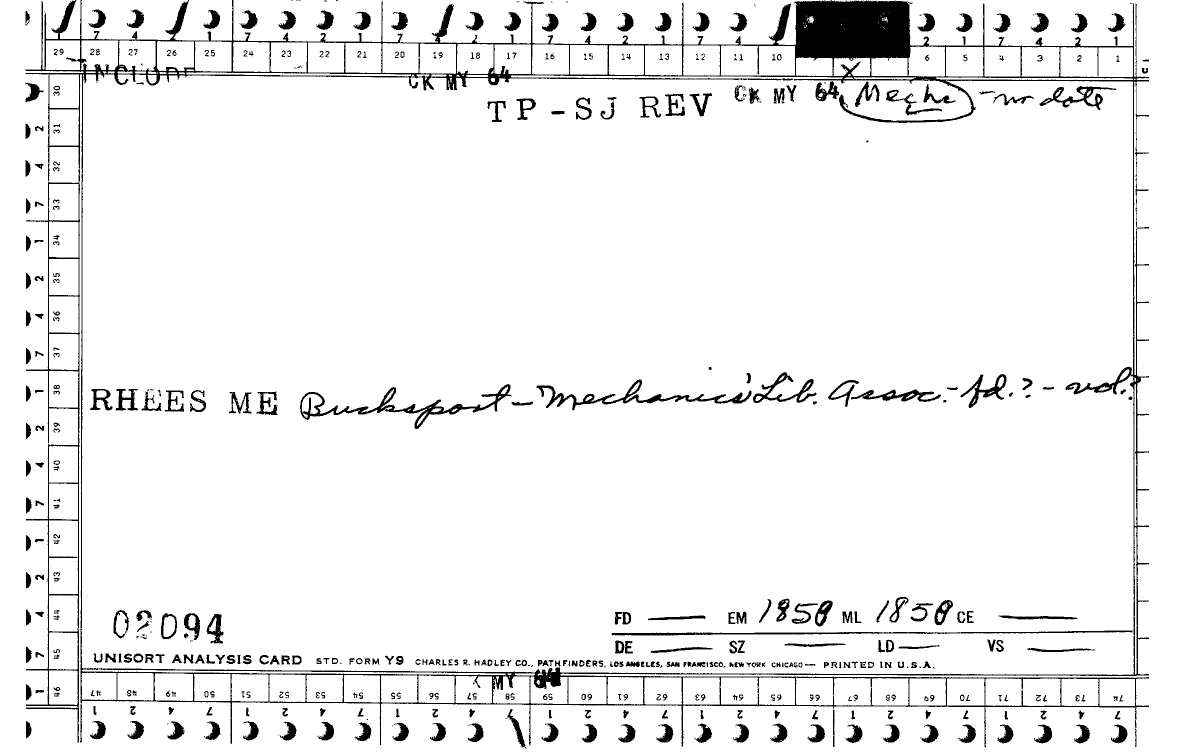 7 4 2 1 7 4 2 1 7 4 2 1 7 4 2 1 7 4 2 1 2 1 7 4 2 1
29 28 27 26 25 24 23 22 21 20 19 18 17 16 15 14 13 12 11 10 6 5 4 3 2 1
INCLUDE
CK MY 64
X
CK MY 64 Mechs - no date
TP-SJ REV
30
2 31
4 32
7 33
1 34
2 35
4 36
7 37
1 38
RHEES ME Bucksport - Mechanics' Lib. Assoc. - fd.? - vol.?
2 39
4 40
7 41
1 42
2 43
4 44
02094
FD EM 1858 ML 1858 CE
DE SZ LD VS
7 45
UNISORT ANALYSIS CARD STD. FORM Y9 CHARLES R. HADLEY CO., PATHFINDERS, LOS ANGELES, SAN FRANCISCO, NEW YORK CHICAGO — PRINTED IN U.S.A.
MY 64
1 46
47 48 49 50 51 52 53 54 55 56 57 58 59 60 61 62 63 64 65 66 67 68 69 70 71 72 73 74
1 2 4 7 1 2 4 7 1 2 4 7 1 2 4 7 1 2 4 7 1 2 4 7 1 2 4 7